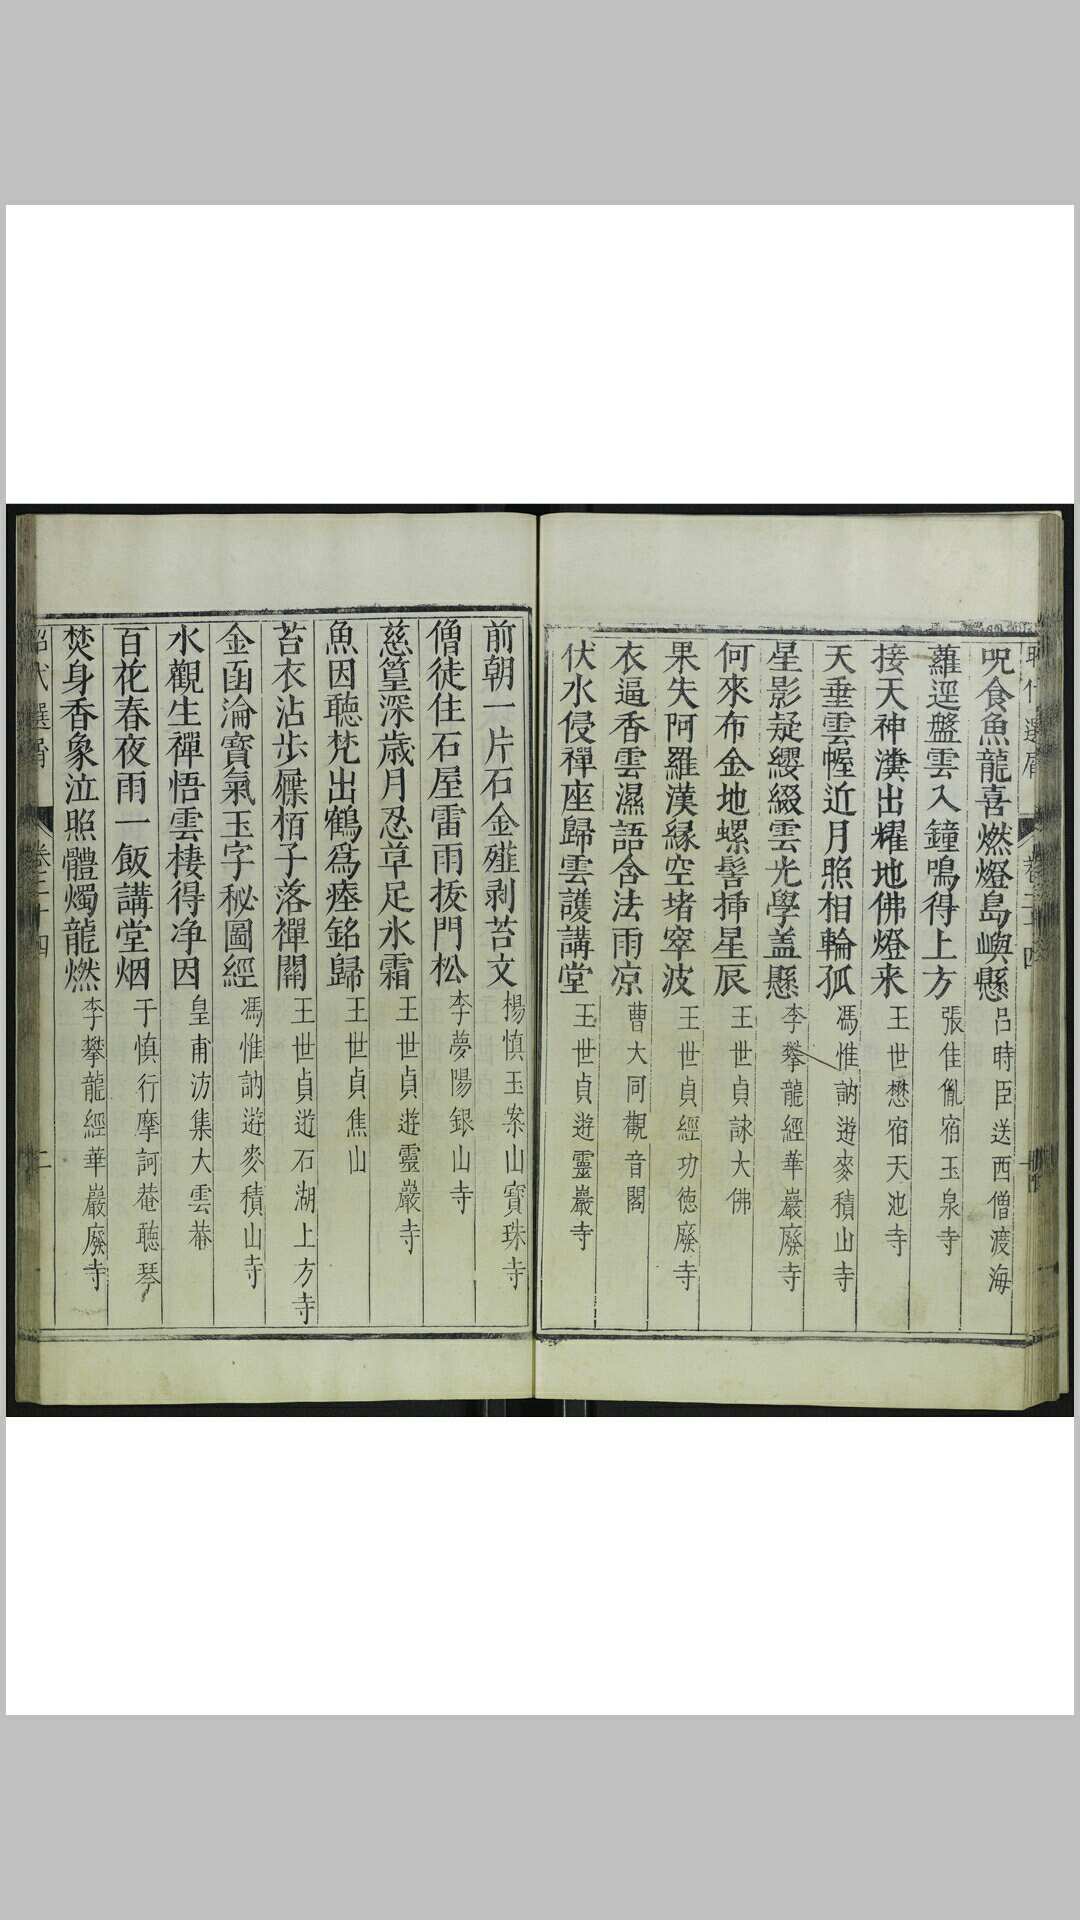 昭代選屑 卷三十四
呪食魚龍喜燃燈島嶼懸 呂時臣送西僧渡海
蘿逕盤雲入鐘鳴得上方 張佳胤宿玉泉寺
接天神瀵出耀地佛燈来 王世懋宿天池寺
天垂雲幄近月照相輪孤 馮惟訥遊麥積山寺
星影疑纓綴雲光學盖懸 李攀龍經華巖廢寺
何來布金地螺髻揷星辰 王世貞詠大佛
果失阿羅漢緣空堵窣波 王世貞經功德廢寺
衣逼香雲濕語含法雨凉 曹大同觀音閣
伏水侵禪座歸雲護講堂 王世貞遊靈巖寺
前朝一片石金殭剥苔文 楊慎玉案山寳珠寺
僧徒住石屋雷雨扳門松 李夢陽銀山寺
慈篁深歳月忍草足氷霜 王世貞遊靈巖寺
魚因聽梵出鶴爲瘗銘歸 王世貞焦山
苔衣沾步屧栢子落禪關 王世貞遊石湖上方寺
金函淪寳氣玉字秘圖經 馮惟訥遊麥積山寺
水觀生禪悟雲棲得净因 皇甫汸集大雲菴
百花春夜雨一飯講堂烟 于慎行摩訶菴聽琴
焚身香象泣照體燭龍燃 李攀龍經華巖廢寺
昭代選屑 卷三十四 二